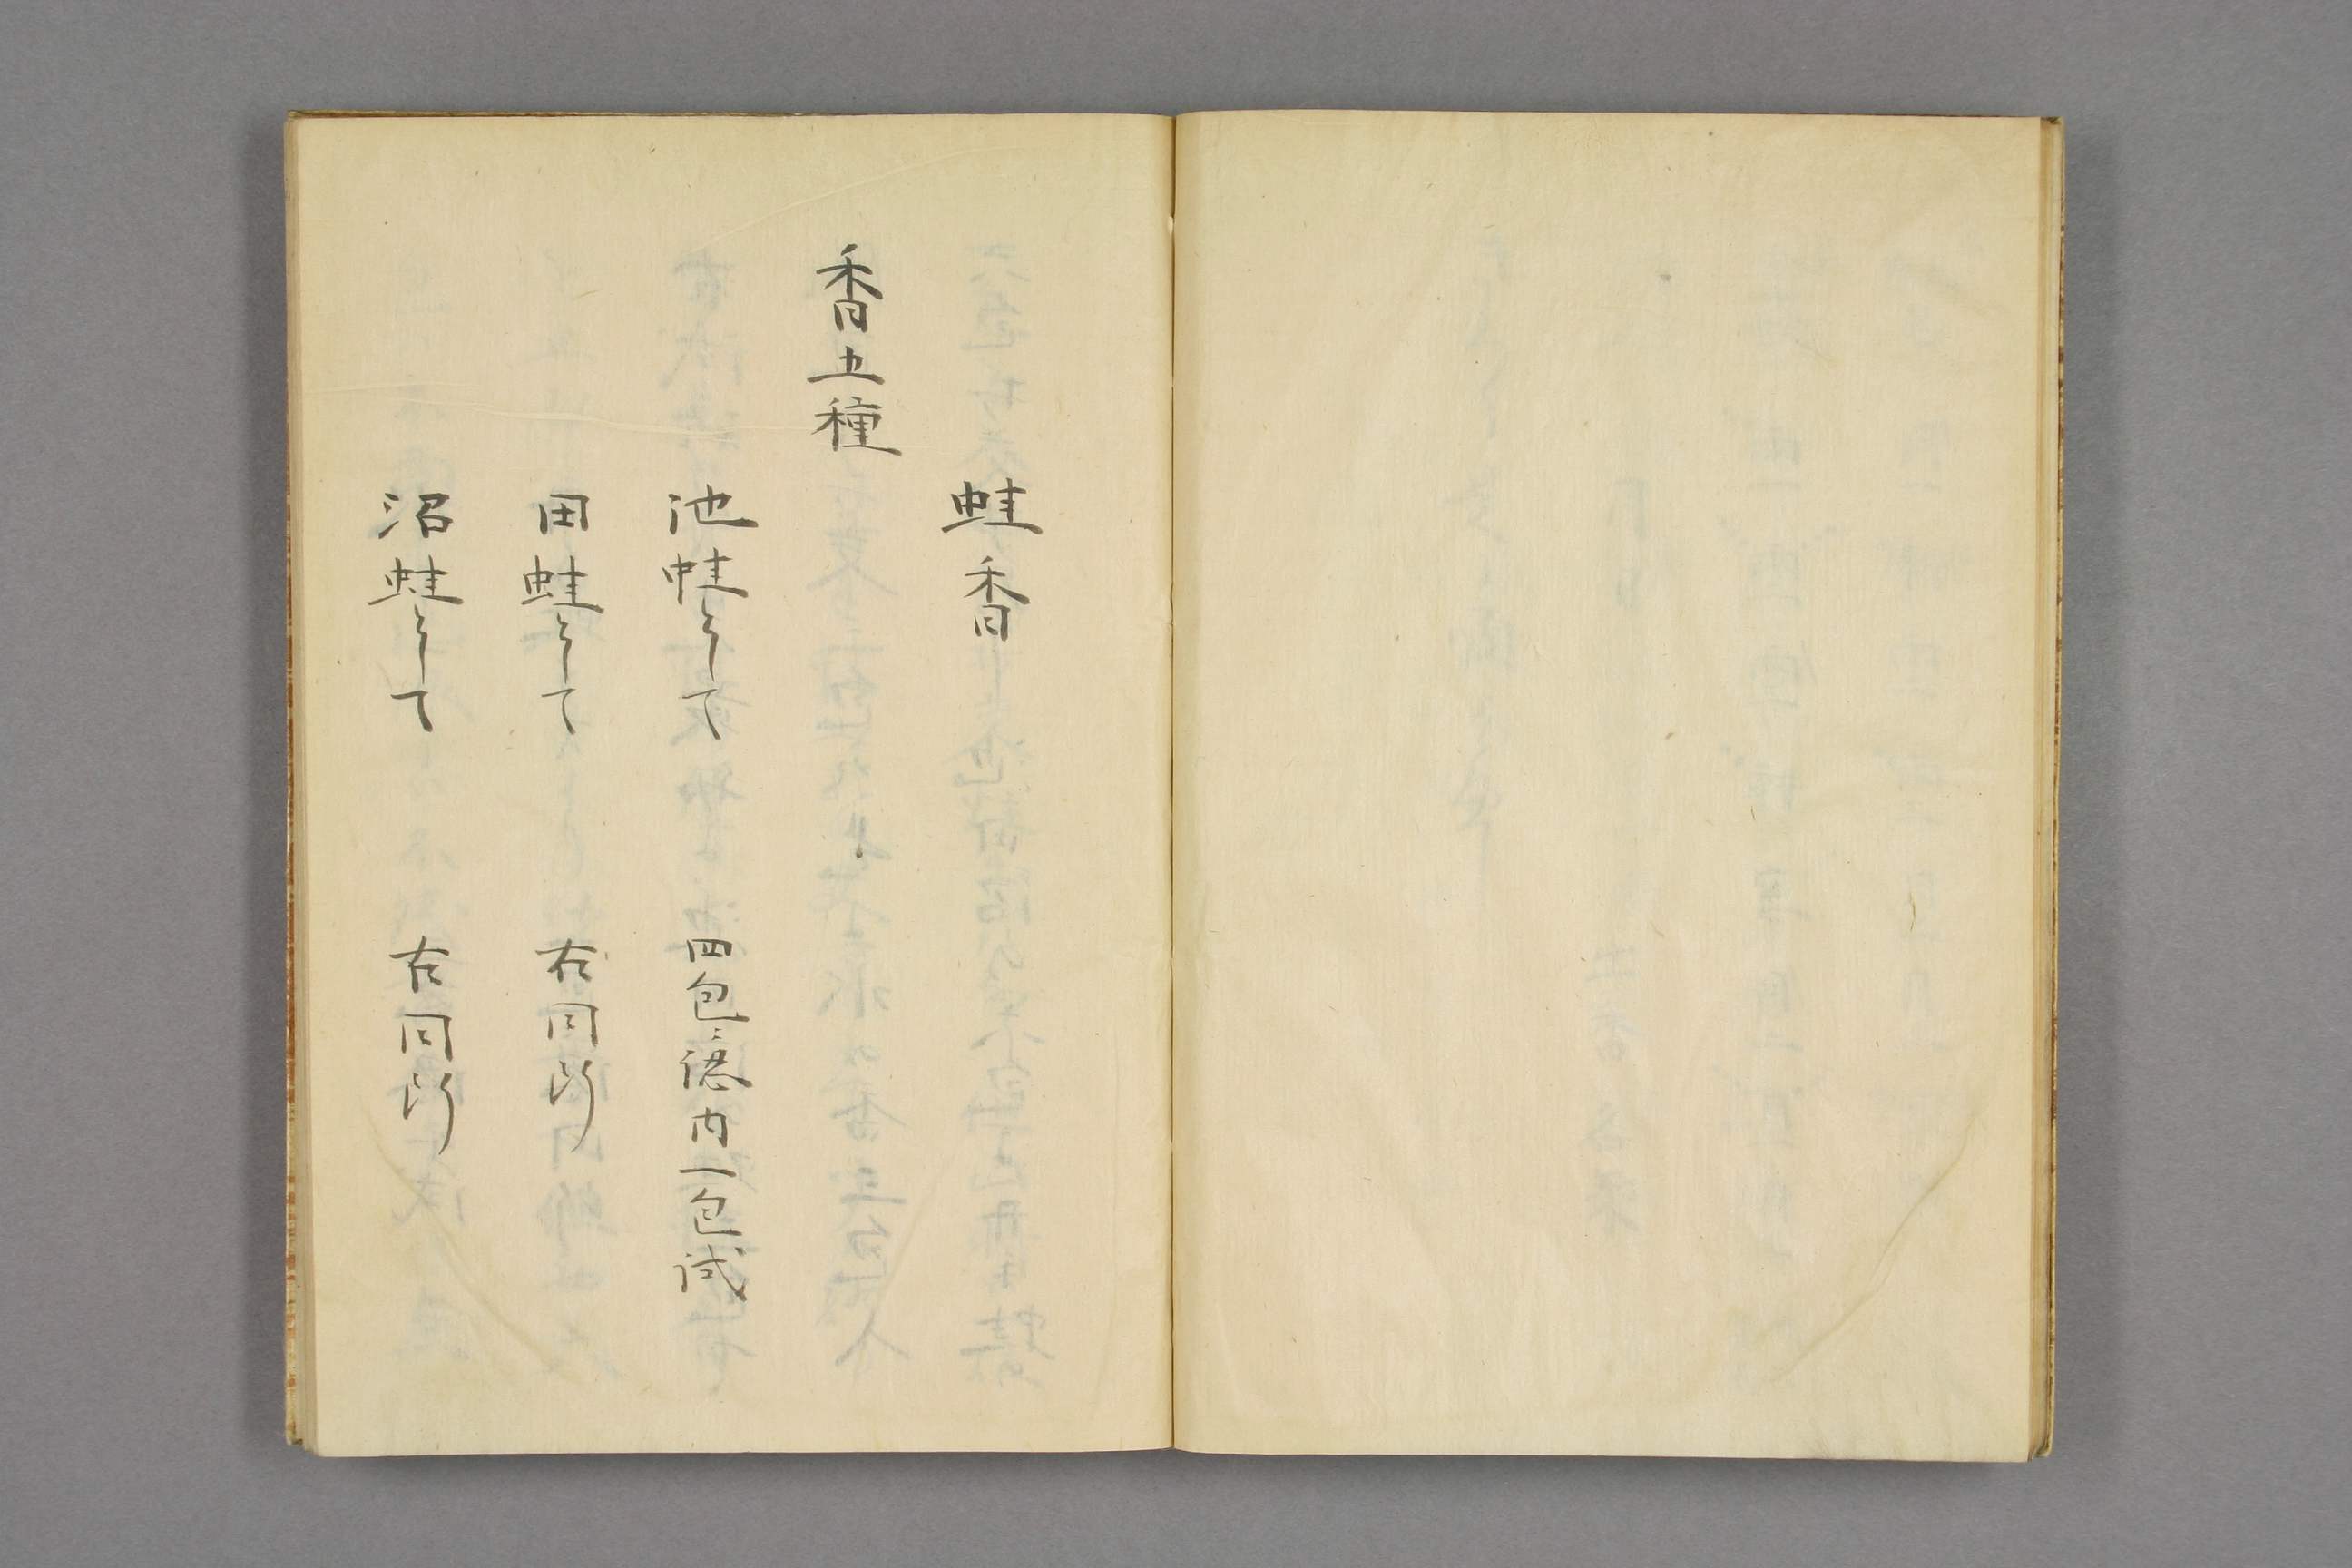 蛙香
香五種
池蛙として 四包ニ認内一包試
田蛙として 右同断
沼蛙として 右同断